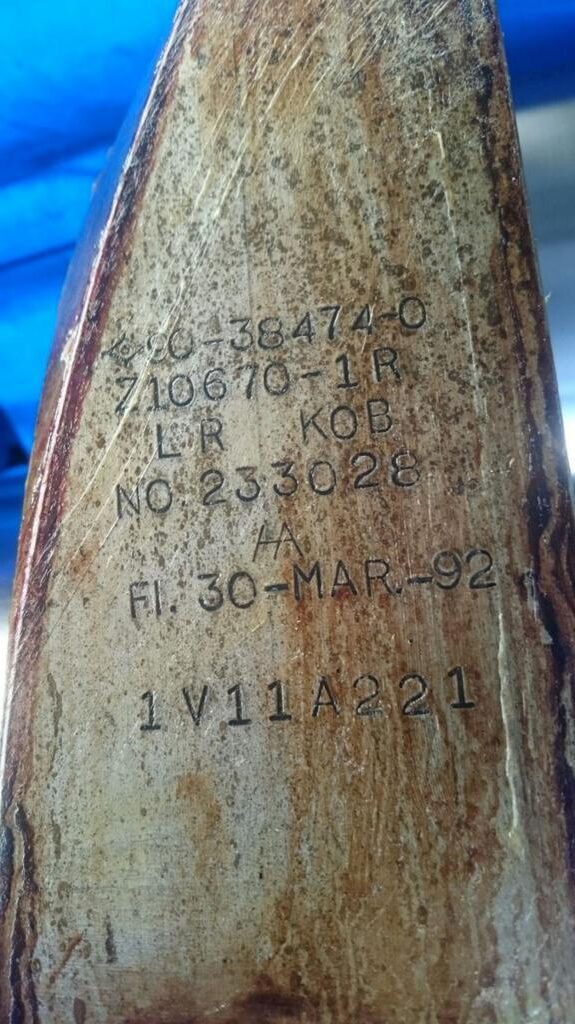 90-38474-0
Z10670-1R
LR KOB
NO.233028
HA
FI. 30-MAR.-92
1V11A221